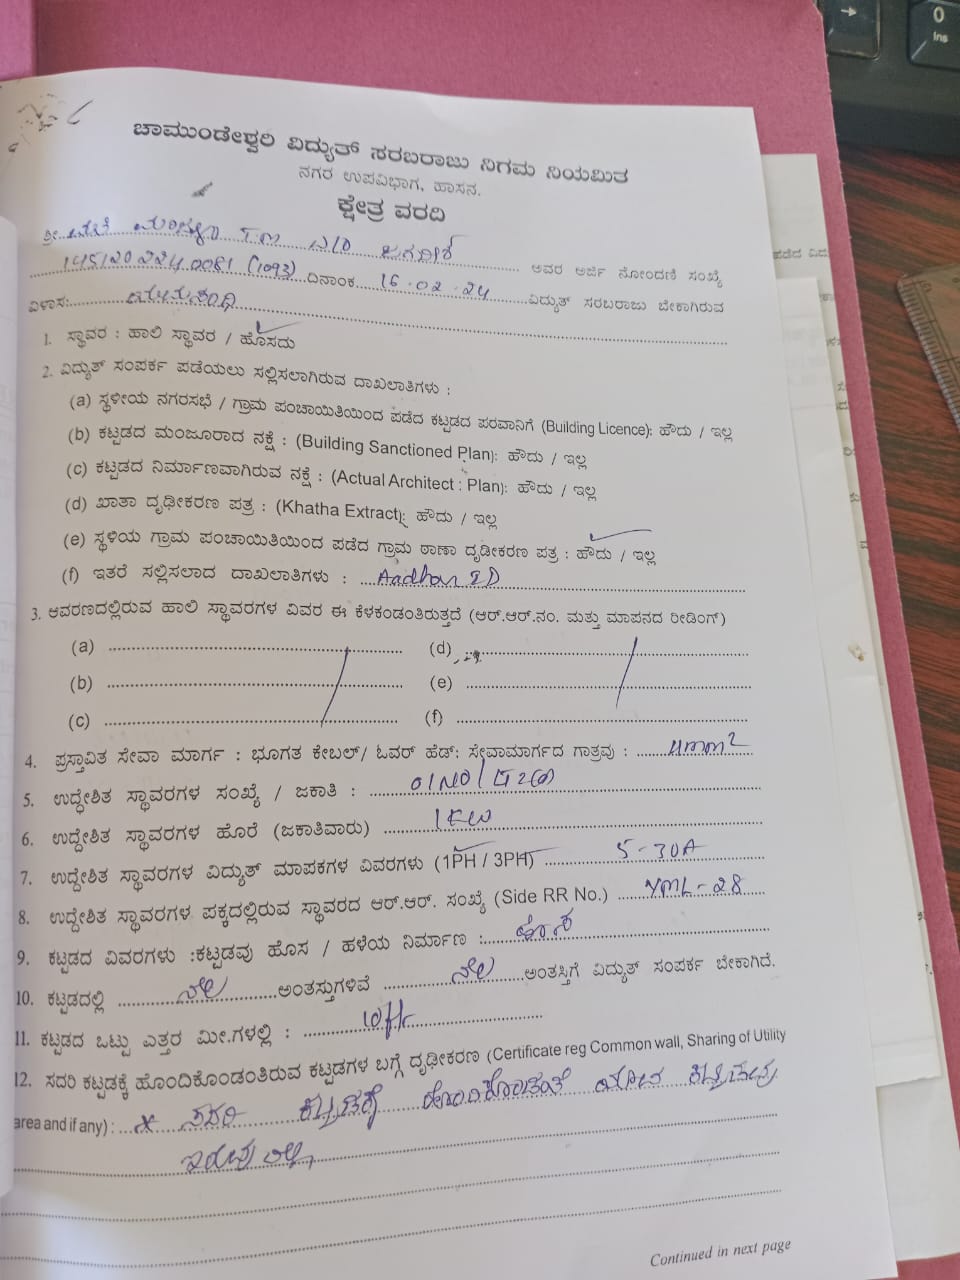 ಚಾಮುಂಡೇಶ್ವರಿ ವಿದ್ಯುತ್ ಸರಬರಾಜು ನಿಗಮ ನಿಯಮಿತ
ನಗರ ಉಪವಿಭಾಗ, ಹಾಸನ.
ಕ್ಷೇತ್ರ ವರದಿ
ಶ್ರೀ. T.M ಜಗದೀಶ ಅವರ ಅರ್ಜಿ ನೋಂದಣಿ ಸಂಖ್ಯೆ
(1093) ದಿನಾಂಕ 16.02.24 ವಿದ್ಯುತ್ ಸರಬರಾಜು ಬೇಕಾಗಿರುವ
ವಿಳಾಸ:
1. ಸ್ಥಾವರ : ಹಾಲಿ ಸ್ಥಾವರ / ಹೊಸದು
2. ವಿದ್ಯುತ್ ಸಂಪರ್ಕ ಪಡೆಯಲು ಸಲ್ಲಿಸಲಾಗಿರುವ ದಾಖಲಾತಿಗಳು :
(a) ಸ್ಥಳೀಯ ನಗರಸಭೆ / ಗ್ರಾಮ ಪಂಚಾಯಿತಿಯಿಂದ ಪಡೆದ ಕಟ್ಟಡದ ಪರವಾನಿಗೆ (Building Licence): ಹೌದು / ಇಲ್ಲ
(b) ಕಟ್ಟಡದ ಮಂಜೂರಾದ ನಕ್ಷೆ : (Building Sanctioned Plan): ಹೌದು / ಇಲ್ಲ
(c) ಕಟ್ಟಡದ ನಿರ್ಮಾಣವಾಗಿರುವ ನಕ್ಷೆ : (Actual Architect : Plan): ಹೌದು / ಇಲ್ಲ
(d) ಖಾತಾ ದೃಢೀಕರಣ ಪತ್ರ : (Khatha Extract): ಹೌದು / ಇಲ್ಲ
(e) ಸ್ಥಳಿಯ ಗ್ರಾಮ ಪಂಚಾಯಿತಿಯಿಂದ ಪಡೆದ ಗ್ರಾಮ ಠಾಣಾ ದೃಡೀಕರಣ ಪತ್ರ : ಹೌದು / ಇಲ್ಲ
(f) ಇತರೆ ಸಲ್ಲಿಸಲಾದ ದಾಖಲಾತಿಗಳು : Aadhar ID
3. ಆವರಣದಲ್ಲಿರುವ ಹಾಲಿ ಸ್ಥಾವರಗಳ ವಿವರ ಈ ಕೆಳಕಂಡಂತಿರುತ್ತದೆ (ಆರ್.ಆರ್.ನಂ. ಮತ್ತು ಮಾಪನದ ರೀಡಿಂಗ್)
(a) (d)
(b) (e)
(c) (f)
4. ಪ್ರಸ್ತಾವಿತ ಸೇವಾ ಮಾರ್ಗ : ಭೂಗತ ಕೇಬಲ್/ ಓವರ್ ಹೆಡ್: ಸೇವಾಮಾರ್ಗದ ಗಾತ್ರವು : 4mm²
5. ಉದ್ದೇಶಿತ ಸ್ಥಾವರಗಳ ಸಂಖ್ಯೆ / ಜಕಾತಿ : 01NO/LT2(a)
6. ಉದ್ದೇಶಿತ ಸ್ಥಾವರಗಳ ಹೊರೆ (ಜಕಾತಿವಾರು) 1KW
7. ಉದ್ದೇಶಿತ ಸ್ಥಾವರಗಳ ವಿದ್ಯುತ್ ಮಾಪಕಗಳ ವಿವರಗಳು (1PH / 3PH) 5-30A
8. ಉದ್ದೇಶಿತ ಸ್ಥಾವರಗಳ ಪಕ್ಕದಲ್ಲಿರುವ ಸ್ಥಾವರದ ಆರ್.ಆರ್. ಸಂಖ್ಯೆ (Side RR No.) YML-28
9. ಕಟ್ಟಡದ ವಿವರಗಳು :ಕಟ್ಟಡವು ಹೊಸ / ಹಳೆಯ ನಿರ್ಮಾಣ : ಹೊಸ
10. ಕಟ್ಟಡದಲ್ಲಿ ನೆಲ ಅಂತಸ್ತುಗಳಿವೆ ನೆಲ ಅಂತಸ್ತಿಗೆ ವಿದ್ಯುತ್ ಸಂಪರ್ಕ ಬೇಕಾಗಿದೆ.
11. ಕಟ್ಟಡದ ಒಟ್ಟು ಎತ್ತರ ಮೀ.ಗಳಲ್ಲಿ : 10ft
12. ಸದರಿ ಕಟ್ಟಡಕ್ಕೆ ಹೊಂದಿಕೊಂಡಂತಿರುವ ಕಟ್ಟಡಗಳ ಬಗ್ಗೆ ದೃಢೀಕರಣ (Certificate reg Common wall, Sharing of Utility
area and if any) : ಸದರಿ ಕಟ್ಟಡಕ್ಕೆ ಹೊಂದಿಕೊಂಡಂತೆ ಯಾವ ಕಟ್ಟಡವು
ಇರುವುದಿಲ್ಲ
Continued in next page